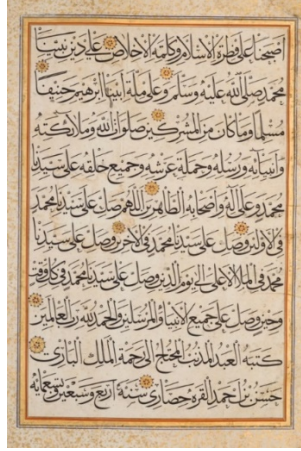 أصبحنا على فطرة الإسلام وكلمة الإخلاص على دين نبينا
محمد صلى الله عليه وسلم وعلى ملة أبينا إبرهيم حنيفا
مسلما وما كان من المشركين صلوات الله وملائكته
وأنبيائه ورسله وحملة عرشه وجميع خلقه على سيدنا
محمد وعلى آله وأصحابه الطاهرين اللهم صل على سيدنا محمد
في الأولين وصل على سيدنا محمد في الآخرين وصل على سيدنا
محمد في الملأ الأعلى إلى يوم الدين وصل على سيدنا محمد في كل وقت
وحين وصل على جميع الأنبياء والمرسلين والحمد لله رب العالمين
كتبه العبد المذنب المحتاج إلى رحمة الملك الباري
حسن بن أحمد القره حصاري سنة أربع وسبعين وتسعمائة